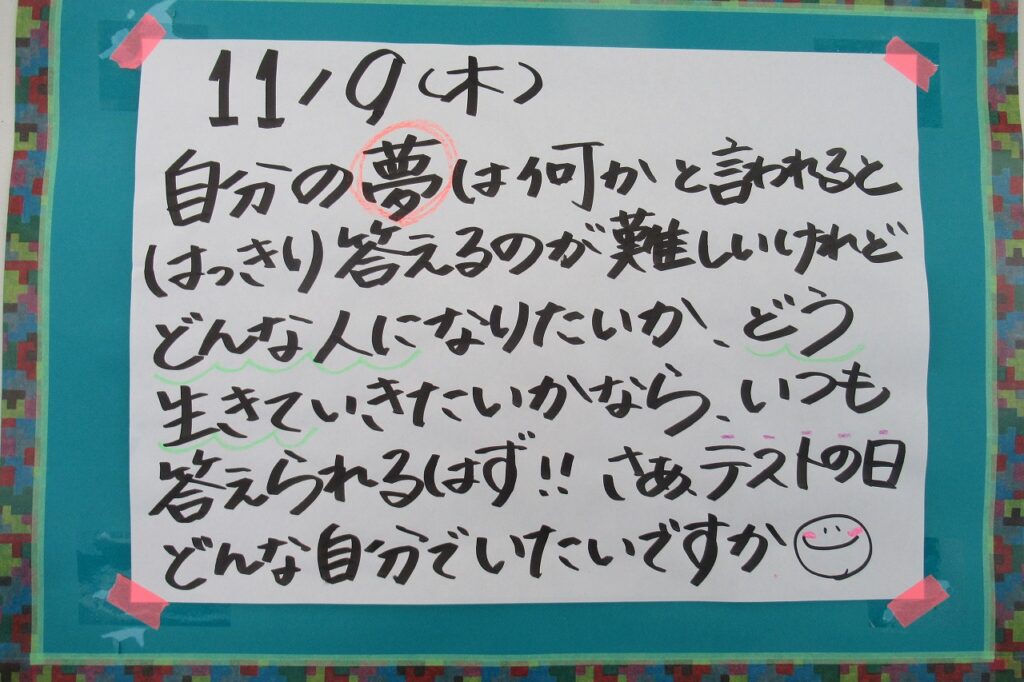 11/9(木)
自分の夢は何かと言われると
はっきり答えるのが難しいけれど
どんな人になりたいか、どう
生きていきたいかなら、いつも
答えられるはず!! さあ、テストの日
どんな自分でいたいですか